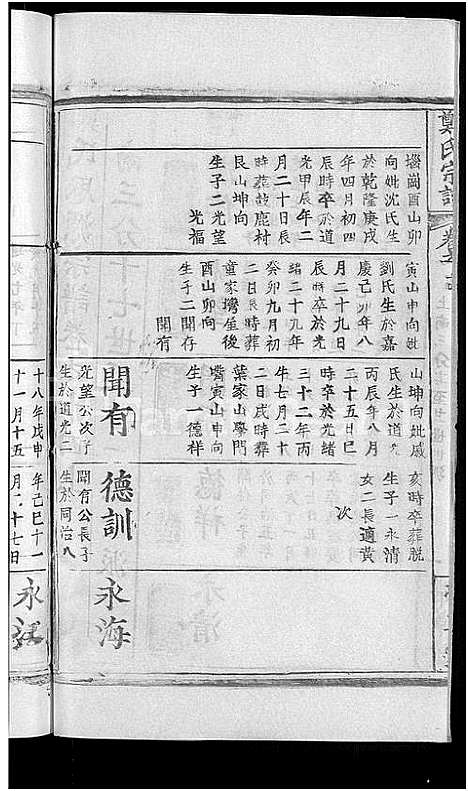 鄭氏宗譜
塆崗酉山卯
向妣沈氏生
於乾隆庚戌
年四月初四
辰時卒於道
光甲辰年二
月二十日辰
時葬鼓鹿村
艮山坤向
生子二光望
光福
寅山申向妣
劉氏生於嘉
慶己卯年八
月二十九日
辰時卒於光
緒二十九年
癸卯九月初
二日辰時葬
童家塆屋後
酉山卯向
生子二聞存
聞有
山坤向妣戚
氏生於道光
丙辰年八月
二十五日巳
時卒於光緒
三十二年丙
午七月二十
二日戌時葬
葉家山學門
嘴寅山申向
生子一德祥
聞有
光望公次子
生於道光二
十八年戊申
十一月十五
亥時卒葬脫
生子一永清
女二長適黃
次
德訓
聞有公長子
生於同治八
年己巳十一
月八十七日
永海
永江